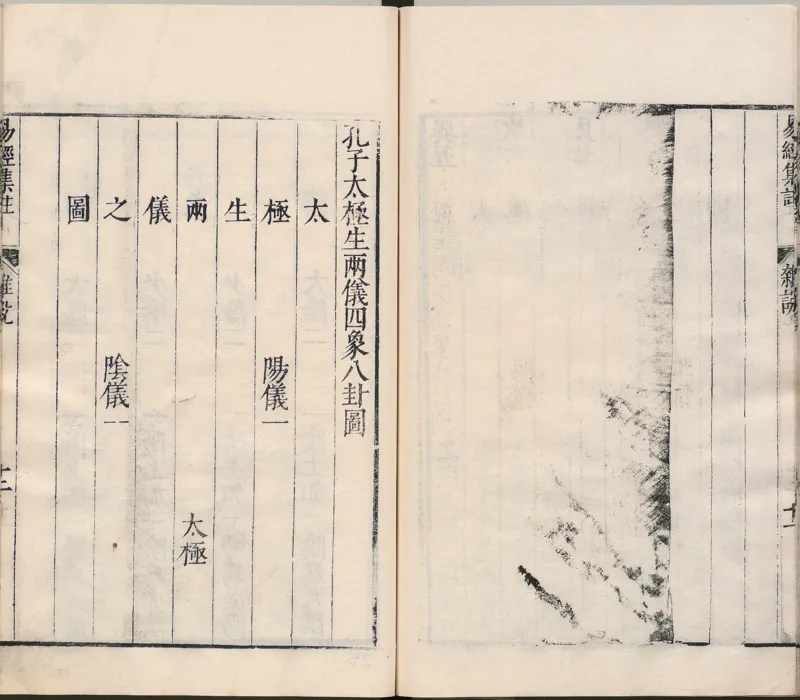 易經集註 雜說 十一
孔子太極生兩儀四象八卦圖
太
極 陽儀⚊
生
兩 太極
儀
之 陰儀⚋
圖
易經集註 雜說 十二